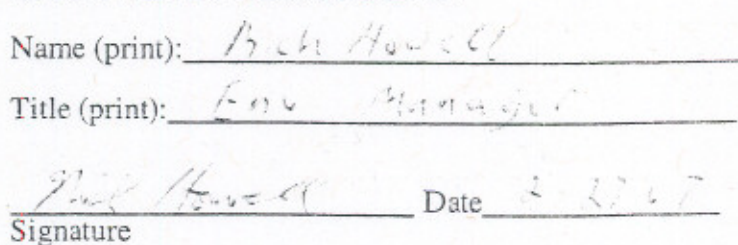 Name (print): Rich Howell
Title (print): Env Manager
Howell Date 2-27-07
Signature